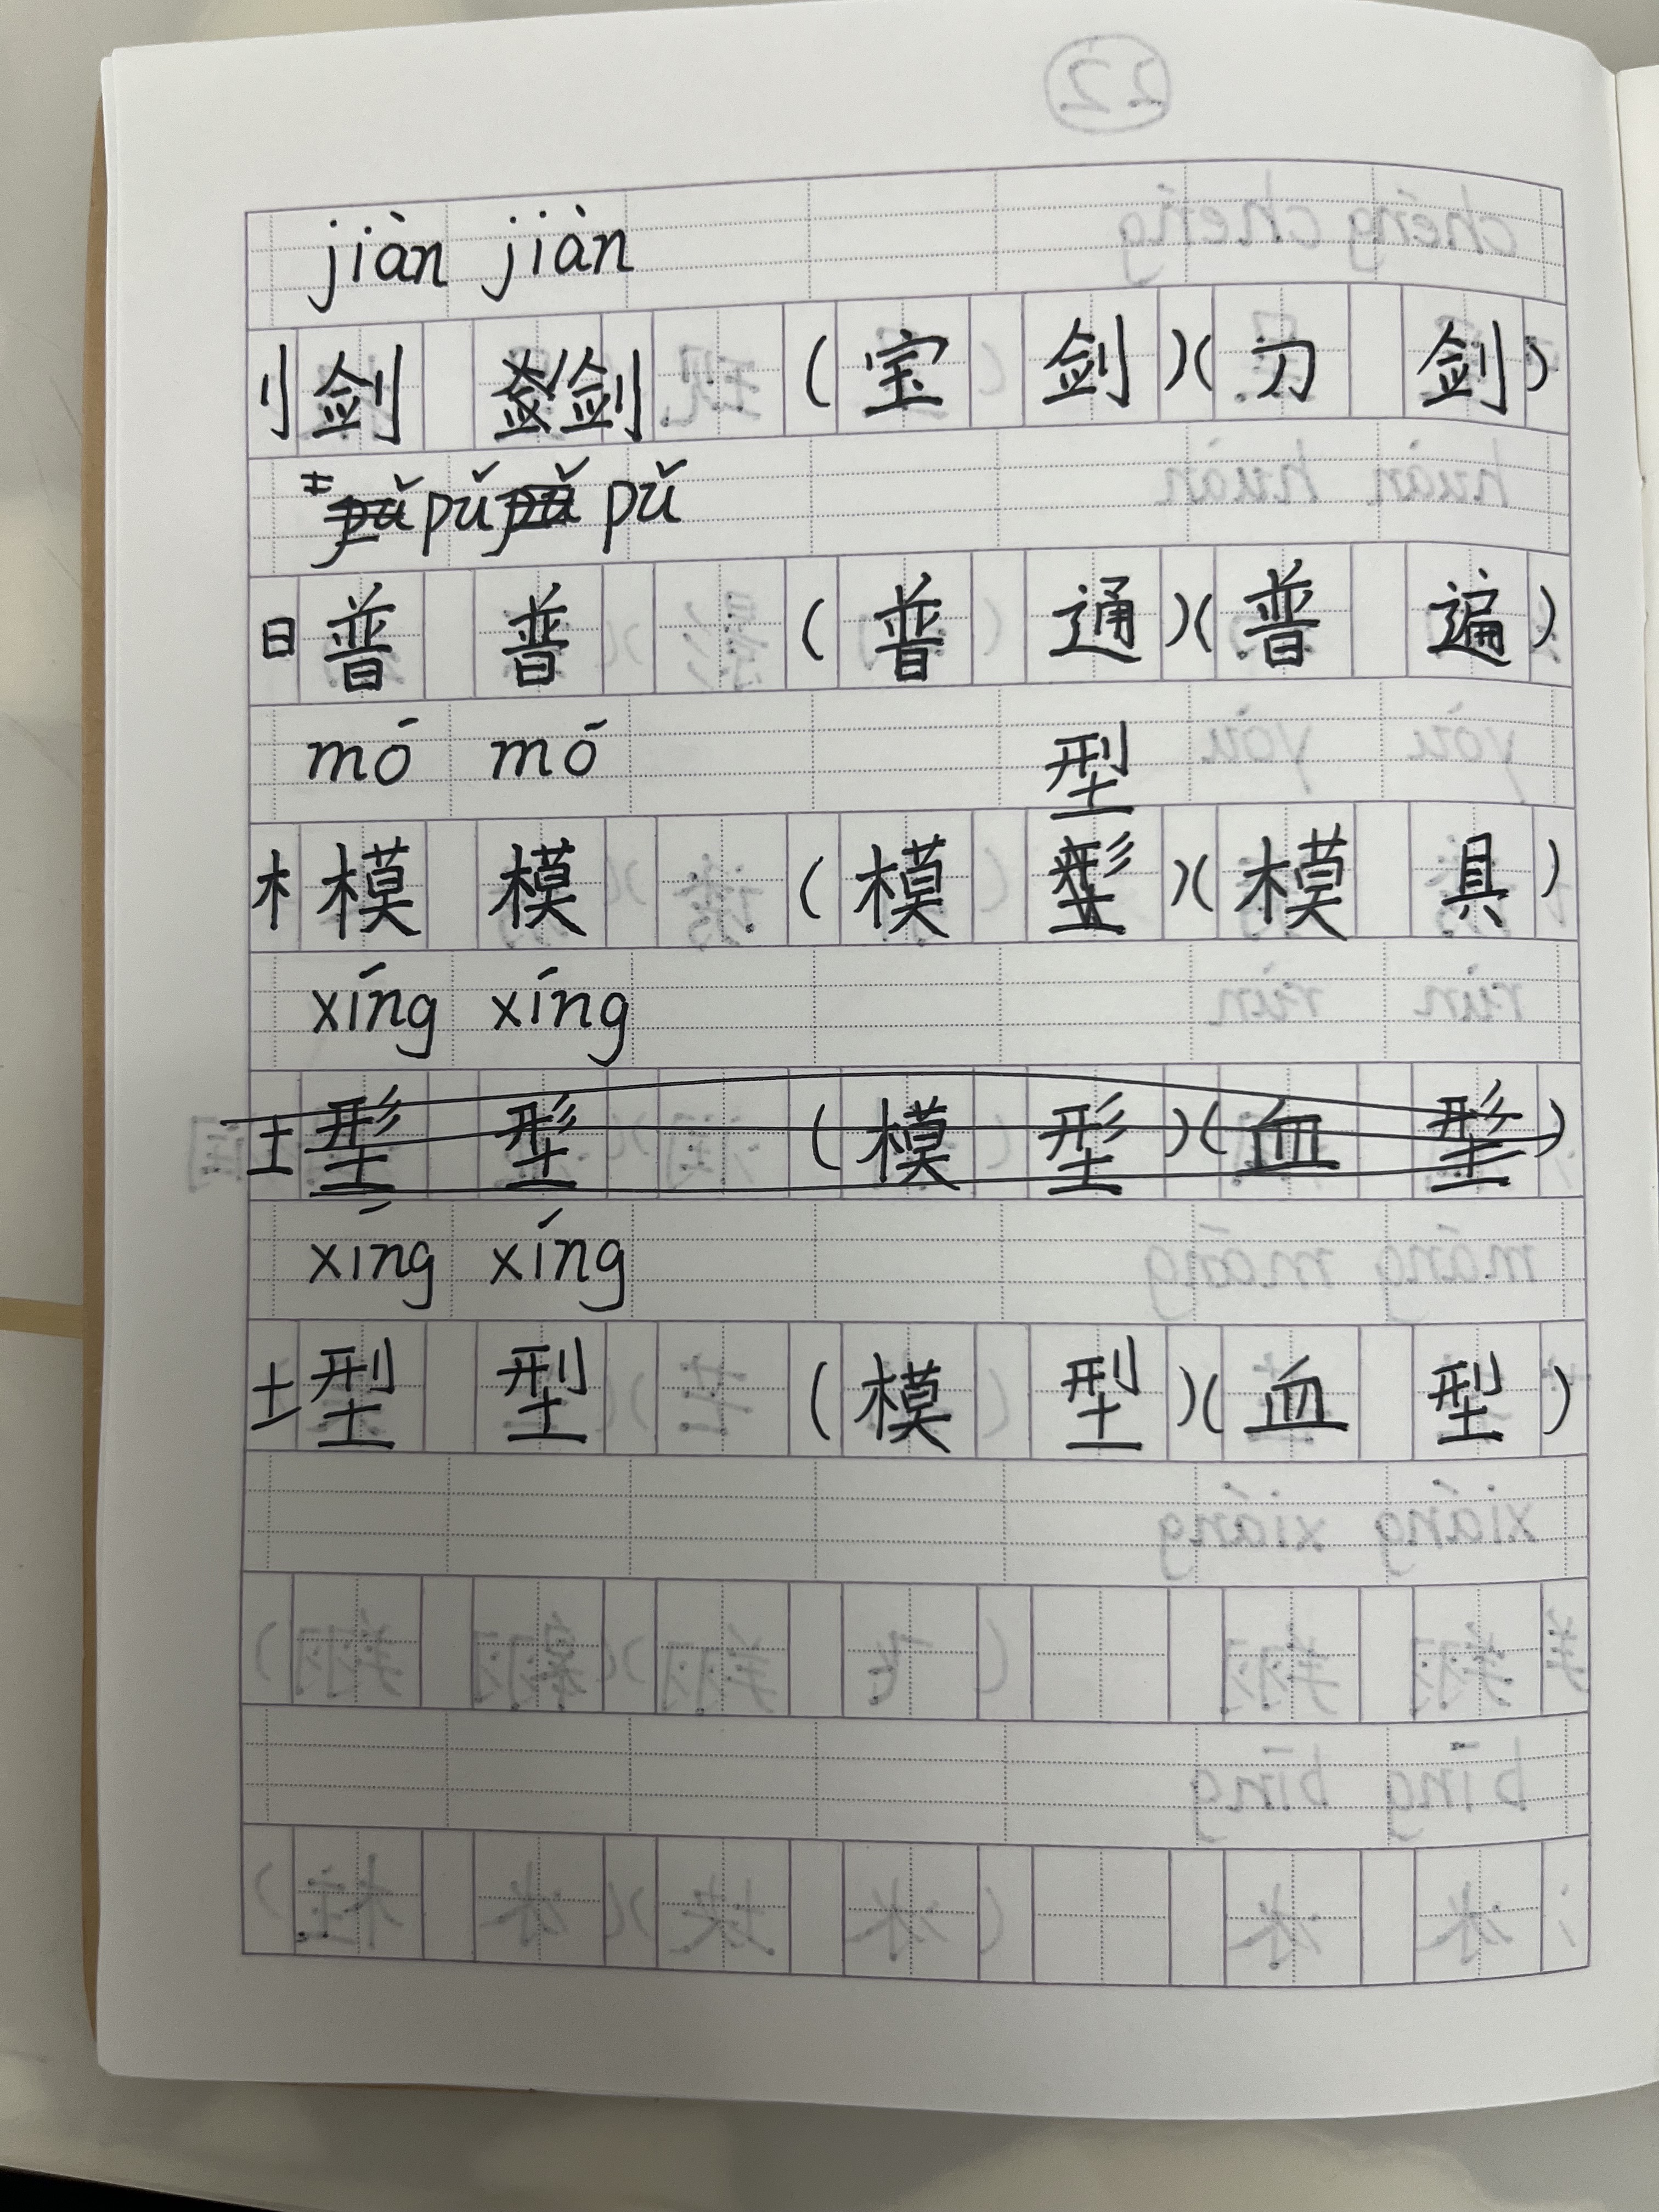 jiàn jiàn
刂 剑 剑 (宝剑)(刀剑)
pǔ pǔ
日 普 普 (普通)(普遍)
mó mó
型
木 模 模 (模)(模具)
xíng xíng
土 (模)(血)
xíng xíng
土 型 型 (模型)(血型)